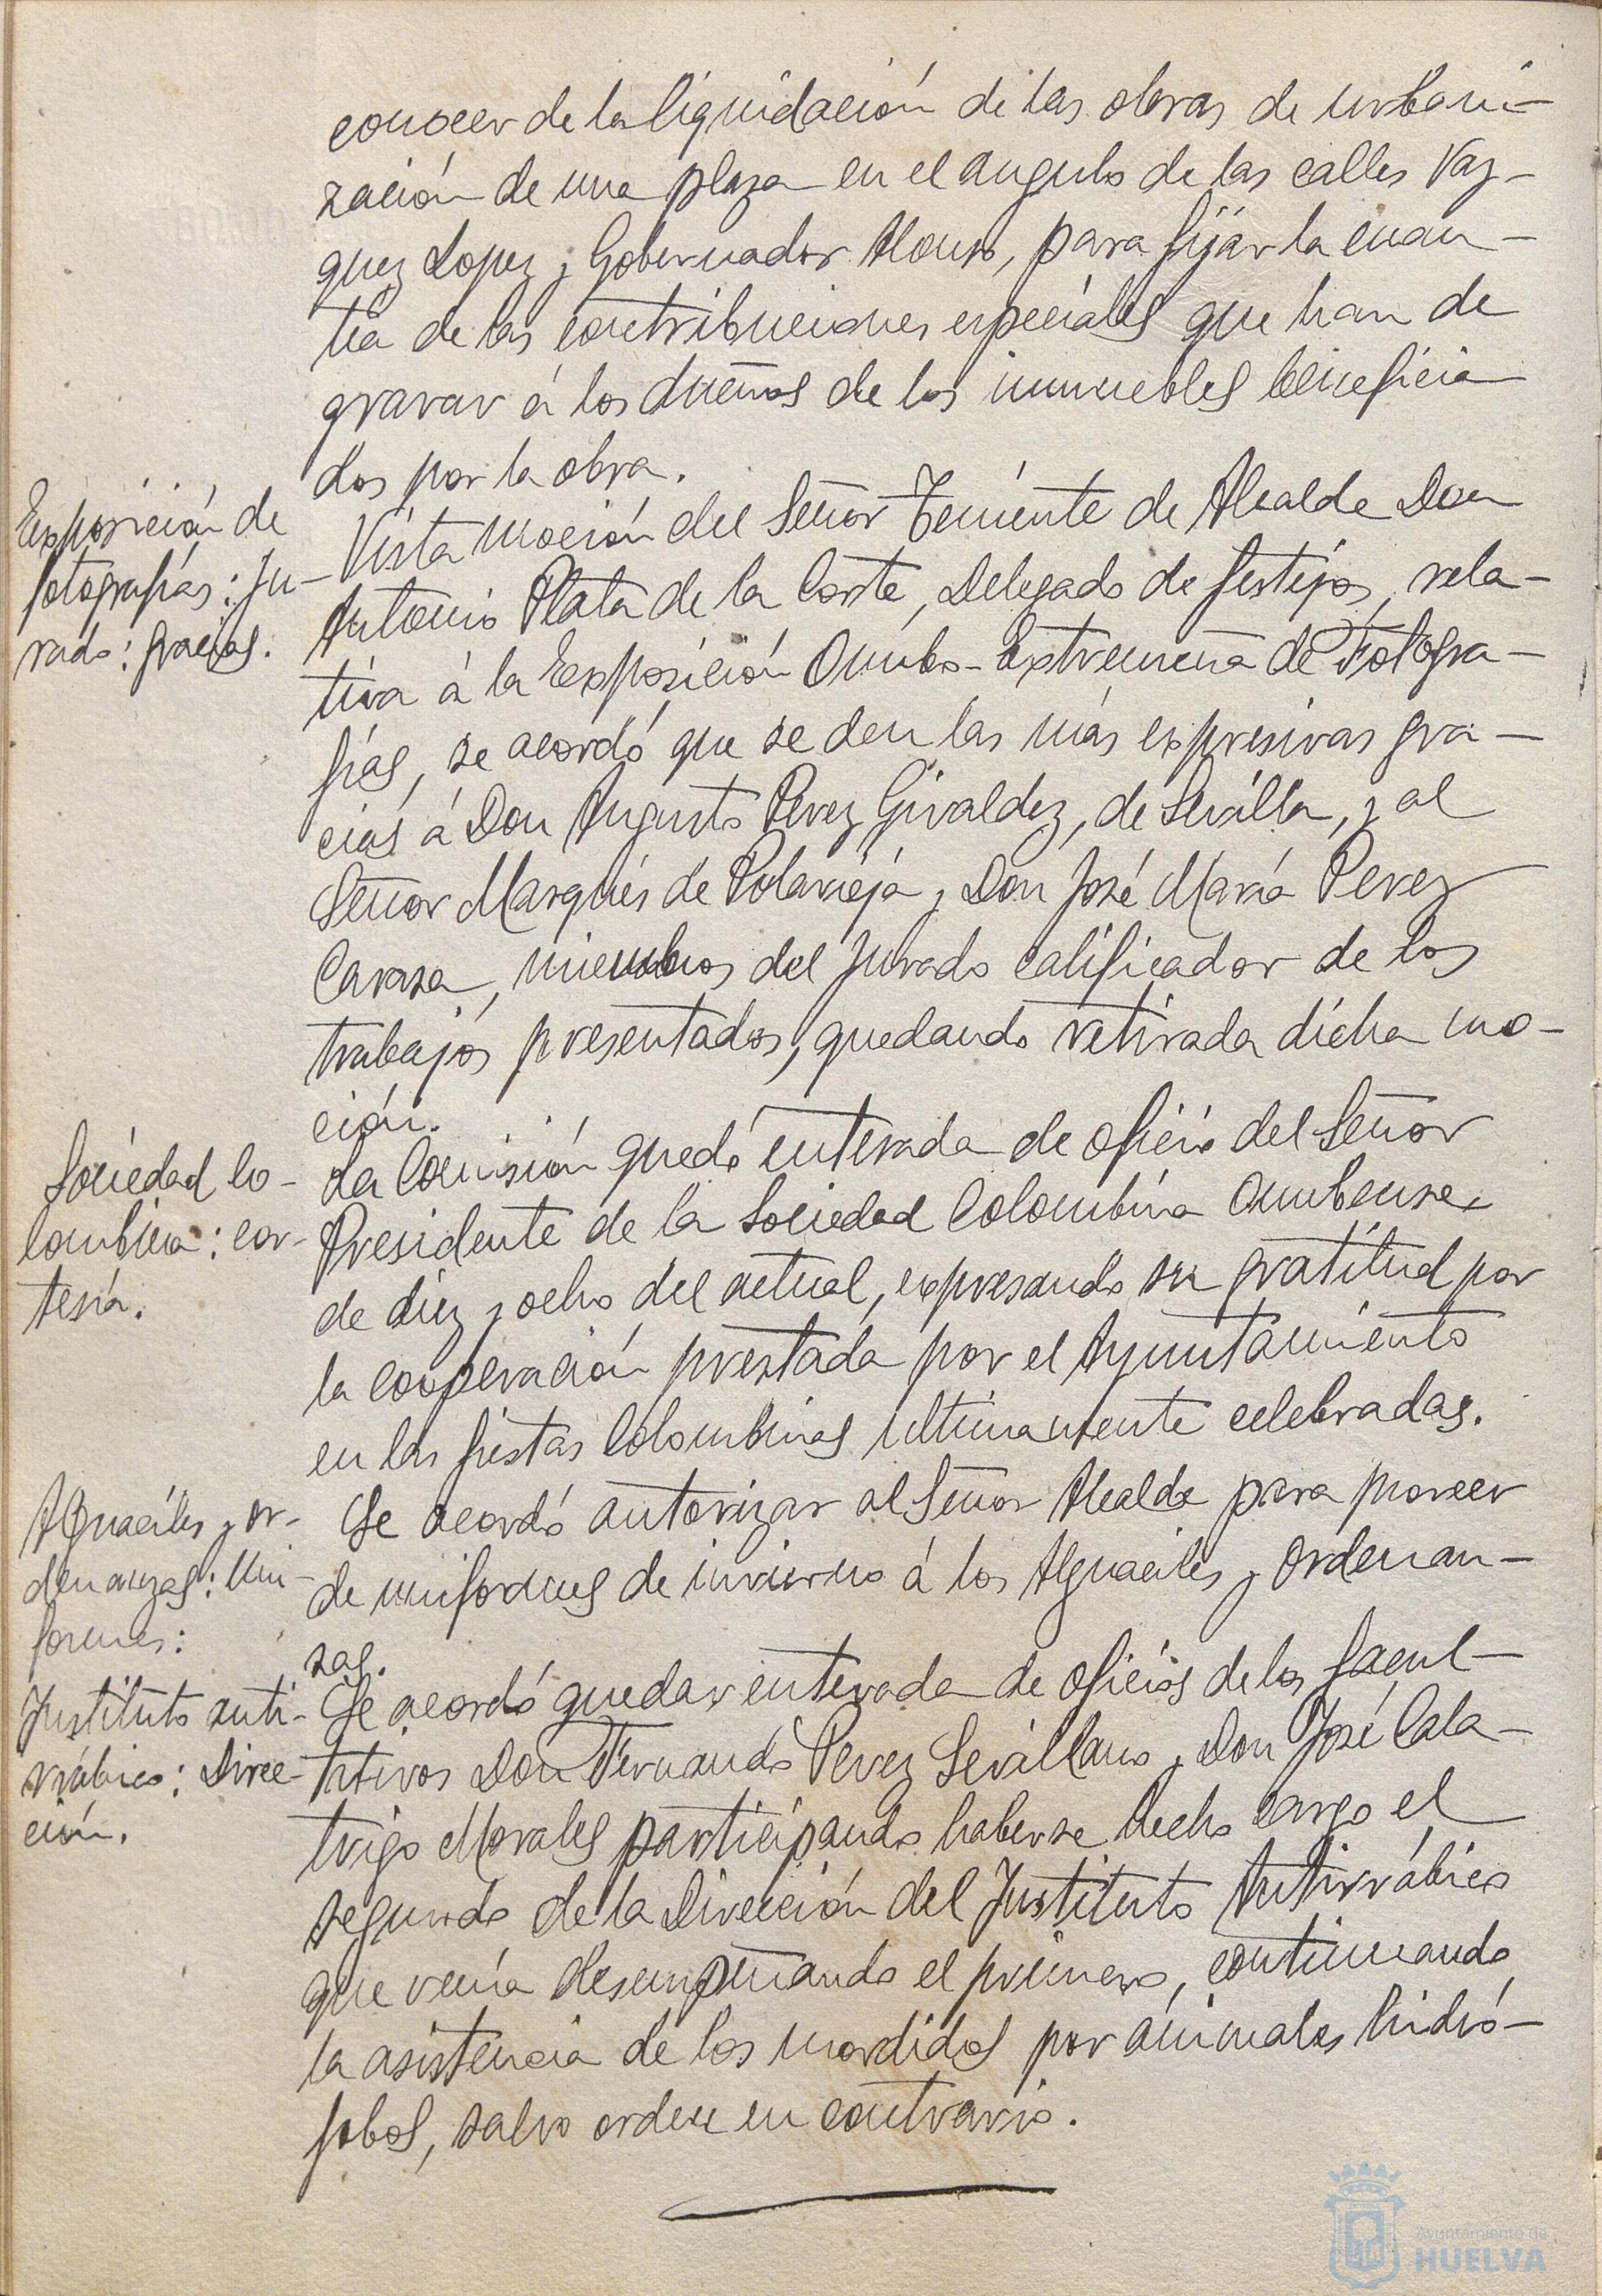 conocer de la liquidación de las obras de urbani-
zación de una plaza en el angulo de las calles Vaz-
quez Lopez y Gobernador Alonso, para fijar la cuan-
tía de las contribuciones especiales que han de
gravar á los dueños de los inmuebles beneficia
dos por la obra.
Exposición de
fotografías: Ju-
rado: gracias.
Vista moción del Señor Teniente de Alcalde Don
Antonio Plata de la Corte, Delegado de festejos, rela-
tiva á la Exposición Onubo-Extremeña de Fotogra-
fías, se acordó que se den las más expresivas gra-
cias á Don Augusto Perez Giraldez, de Sevilla, y al
Señor Marqués de Polavieja y Don José María Perez
Carasa, miembros del Jurado calificador de los
trabajos presentados, quedando retirada dicha mo-
ción.
Sociedad Co-
lombina: cor-
tesía.
La Comisión quedó enterada de oficio del Señor
Presidente de la Sociedad Colombina Onubense,
de diez y ocho del actual, expresando su gratitud por
la cooperación prestada por el Ayuntamiento
en las fiestas Colombinas ultimamente celebradas.
Alguaciles y or-
denanzas: Uni-
formes:
Se acordó autorizar al Señor Alcalde para proveer
de uniformes de invierno á los Alguaciles y Ordenan-
zas.
Instituto anti-
rrábico: Direc-
ción.
Se acordó quedar enterada de oficios de los facul-
tativos Don Fernando Perez Sevillano y Don José Cala-
trigo Morales participando haberse hecho cargo el
segundo de la Dirección del Instituto Antirrábico
que venía desempeñando el primero, continuando
la asistencia de los mordidos por animales hidró-
fobos, salvo orden en contrario.
Ayuntamiento de
HUELVA